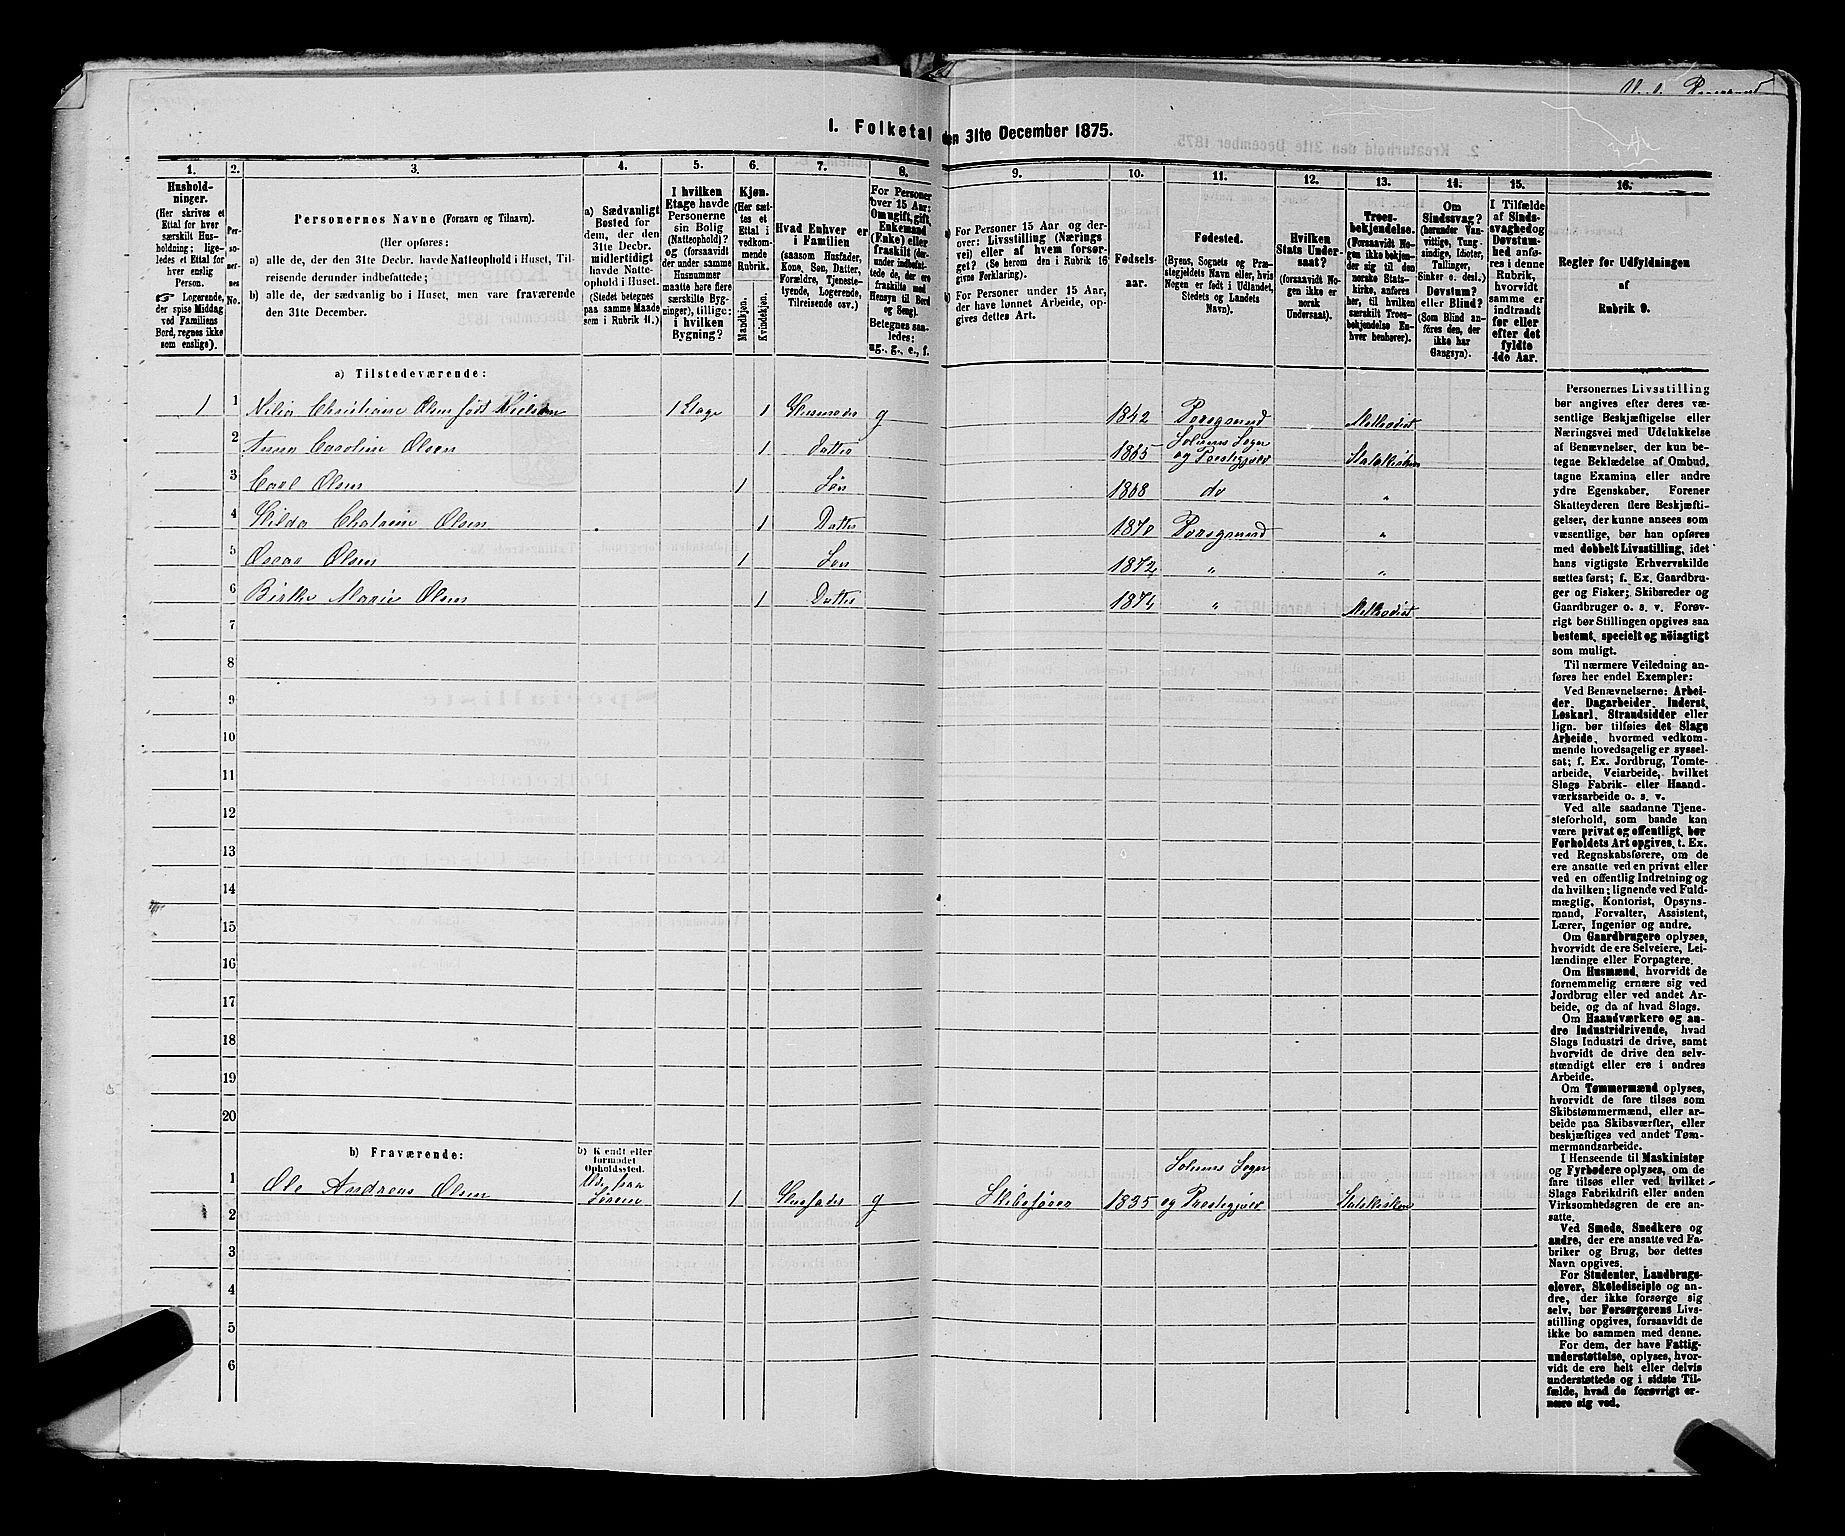 I. Folketal den 31te December 1875.
1.
2.
3.
4.
5.
6.
7.
8.
9.
10.
11.
12.
13.
14.
15.
16.
Hushold-
ninger.
(Her skrives et
Ettal for hver
særskilt Hus-
holdning; lige-
ledes et Ettal for
hver enslig
Person.
☞ Logerende,
der spise Middag
ved Familiens
Bord, regnes ikke
som enslige).
Per-
so-
ner-
nes
No.
Personernes Navne (Fornavn og Tilnavn).
(Her opføres:
a) alle de, der den 31te Decbr. havde Natteophold i Huset, Til-
reisende derunder indbefattede;
b) alle de, der sædvanlig bo i Huset, men vare fraværende
den 31te December.
a) Sædvanligt
Bosted for
dem, der den
31te Decbr.
midlertidigt
havde Natte-
ophold i Huset.
(Stedet betegnes
paa samme Maade
som i Rubrik 11.)
I hvilken
Etage havde
Personerne
sin Bolig
(Natteophold)?
og (forsaavidt
der under samme
Husnummer
maatte høre flere
særskilte Byg-
ninger), tillige:
i hvilken
Bygning?
Kjøn.
(Her sæt-
tes et
Ettal i
vedkom-
mende
Rubrik.
Mandkjøn.
Kvindekjøn.
Hvad Enhver er
i Familien
(saasom Husfader,
Kone, Søn, Datter,
Forældre, Tjeneste-
tyende, Logerende,
Tilreisende osv.)
For Personer
over 15 Aar:
Om ugift, gift,
Enkemand
(Enke) eller
fraskilt (der-
under indbefat-
tede de, der ere
fraskilte med
Hensyn til Bord
og Seng).
Betegnes saa-
ledes:
ug., g., e., f.
a) For Personer 15 Aar og der-
over: Livsstilling (Nærings
vei) eller af hvem forsør-
get? (Se herom den i Rubrik 16
givne Forklaring).
b) For Personer under 15 Aar,
der have lønnet Arbeide, op-
gives dettes Art.
Fødsels-
aar.
Fødested.
(Byens, Sognets og Præ-
stegjeldets Navn eller, hvis
Nogen er født i Udlandet,
Stedets og Landets
Navn).
Hvilken
Stats Under-
saat?
(forsaavidt No-
gen ikke er
norsk
Undersaat).
Troes-
bekjendelse.
(Forsaavidt No-
gen ikke bekjen-
der sig til den
norske Stats-
kirke, anføres
her, til hvilken
særskilt Troes-
bekjendelse En-
hver henhører).
Om
Sindssvag?
(herunder Van-
vittige, Tung-
sindige, Idioter,
Tullinger,
Sinker o. desl.)
Døvstum?
eller Blind?
(Som Blind an-
føres den, der
ikke har
Gangsyn).
I Tilfælde
af Sinds-
svaghed og
Døvstum-
hed anfø-
res i denne
Rubrik,
hvorvidt
samme er
indtraadt
før eller
efter det
fyldte
4de Aar.
Regler for Udfyldningen
af
Rubrik 9.
a) Tilstedeværende:
1 1 Christiane Olsen født Nielsen 1 Etage 1 Husmoder g 1842 Porsgrund Methodist
2 Anna Caroline Olsen 1 Datter 1865 Solums Sogn og Prestegjeld Statskirken
3 Carl Olsen 1 Søn 1868 do "
4 Hilda Chatrine Olsen 1 Datter 1870 Porsgrund "
5 Oscar Olsen 1 Søn 1872 " "
6 Birthe Marie Olsen 1 Datter 1874 " Methodist
7
8
9
10
11
12
13
14
15
16
17
18
19
20
b) Fraværende:
b) Kjendt eller
formodet
Opholdssted.
1 Ole Andreas Olsen 1 Husfader g Skibsfører 1835 Solums Sogn og Prestegjeld Statskirken
2
3
4
5
6
Personernes Livsstilling
bør angives efter deres væ-
sentlige Beskjæftigelse eller
Næringsvei med Udelukkelse
af Benævnelser, der kun be-
tegne Beklædelse af Ombud,
tagne Examina eller andre
ydre Egenskaber. Forener
Skatteyderen flere Beskjæfti-
gelser, der kunne ansees som
væsentlige, bør han opføres
med dobbelt Livsstilling, idet
hans vigtigste Erhvervskilde
sættes først; f. Ex. Gaardbru-
ger og Fisker; Skibsreder og
Gaardbruger o. s. v. Forøv-
rigt bør Stillingen opgives saa
bestemt, specielt og nøiagtigt
som muligt.
Til nærmere Veiledning an-
føres her endel Exempler:
Ved Benævnelserne: Arbei-
der, Dagarbeider, Inderst,
Løskarl, Strandsidder eller
lign. bør tilføies det Slags
Arbeide, hvormed vedkom-
mende hovedsagelig er syssel-
sat; f. Ex. Jordbrug, Tomte-
arbeide, Veiarbeide, hvilket
Slags Fabrik- eller Haand-
værksarbeide o. s. v.
Ved alle saadanne Tjene-
steforhold, som baade kan
være privat og offentligt, bør
Forholdets Art opgives, t. Ex.
ved Regnskabsførere, om de
ere ansatte ved en privat eller
ved en offentlig Indretning og
da hvilken; lignende ved Fuld-
mægtig, Kontorist, Opsyns-
mand, Forvalter, Assistent,
Lærer, Ingeniør og andre.
Om Gaardbrugere oplyses,
hvorvidt de ere Selveiere, Lei-
lændinge eller Forpagtere.
Om Husmænd, hvorvidt de
fornemmelig ernære sig ved
Jordbrug eller ved andet Ar-
beide, og da af hvad Slags.
Om Haandværkere og an-
dre Industridrivende, hvad
Slags Industri de drive, samt
hvorvidt de drive den selv-
stændigt eller ere i andres
Arbeide.
Om Tømmermænd oplyses,
hvorvidt de fare tilsøs som
Skibstømmermænd, eller ar-
beide paa Skibsværfter, eller
beskjæftiges ved andet Tøm-
mermandsarbeide.
I Henseende til Maskinister
og Fyrbødere oplyses, om de
fare tilsøs eller ved hvilket
Slags Fabrikdrift eller anden
Virksomhedsgren de ere an-
satte.
Ved Smede, Snedkere og
andre, der ere ansatte ved Fa-
briker og Brug, bør dettes
Navn opgives.
For Studenter, Landbrugs-
elever, Skoledisciple og an-
dre, der ikke forsørge sig
selv, bør Forsørgerens Livs-
stilling opgives, forsaavidt de
ikke bo sammen med denne.
For dem, der have Fattig-
understøttelse, oplyses, hvor-
vidt de ere helt eller delvis
understøttede og i sidste Til-
fælde, hvad de forøvrigt er-
nære sig ved.